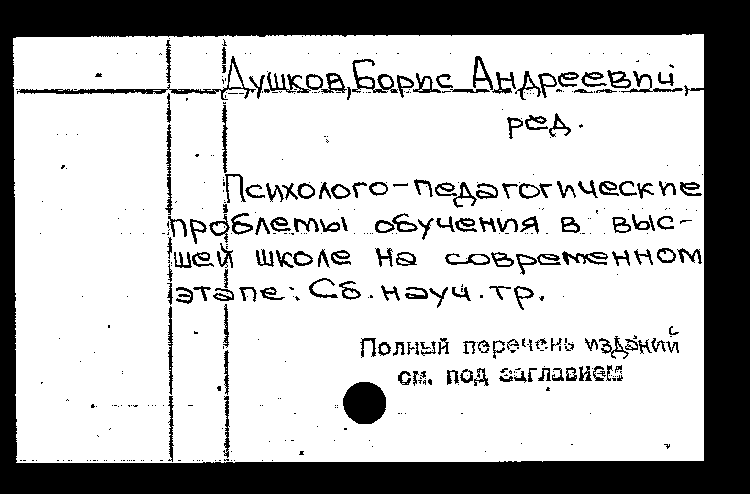 Душков, Борис Андреевич,
ред.
Психолого-педагогические
проблемы обучения в выс-
шей школе на современном
этапе: Сб. науч. тр.
Полный перечень изданий
см. под заглавием